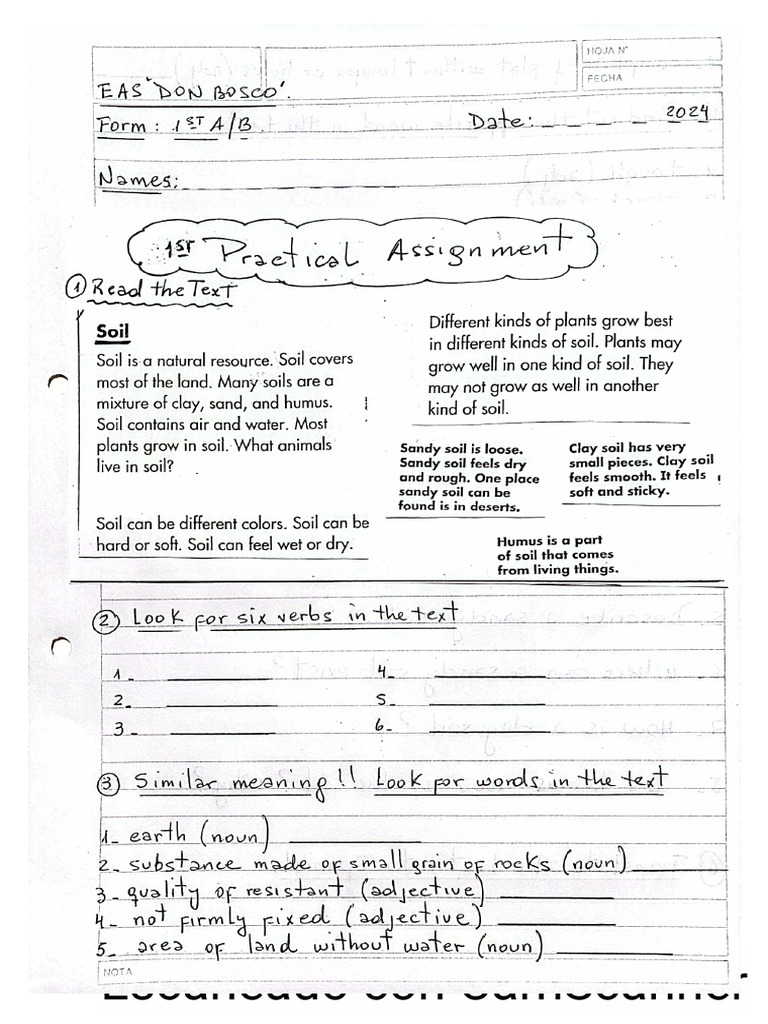 HOJA N°
FECHA
EAS "DON BOSCO".
Form: 1ST A/B
Date: _ _ _ _ 2024
Names: _ _ _ _ _ _
1ST Practical Assignment
① Read the Text
Soil
Soil is a natural resource. Soil covers
most of the land. Many soils are a
mixture of clay, sand, and humus.
Soil contains air and water. Most
plants grow in soil. What animals
live in soil?
Soil can be different colors. Soil can be
hard or soft. Soil can feel wet or dry.
Different kinds of plants grow best
in different kinds of soil. Plants may
grow well in one kind of soil. They
may not grow as well in another
kind of soil.
Sandy soil is loose.
Sandy soil feels dry
and rough. One place
sandy soil can be
found is in deserts.
Clay soil has very
small pieces. Clay soil
feels smooth. It feels
soft and sticky.
Humus is a part
of soil that comes
from living things.
② Look for six verbs in the text
1_ ________ 4_ ________
2_ ________ 5_ ________
3_ ________ 6_ ________
③ Similar meaning!! Look for words in the text
1_ earth (noun) ________
2_ substance made of small grain of rocks (noun) ________
3_ quality of resistant (adjective) ________
4_ not firmly fixed (adjective) ________
5_ area of land without water (noun) ________
NOTA
Escaneado con CamScanner